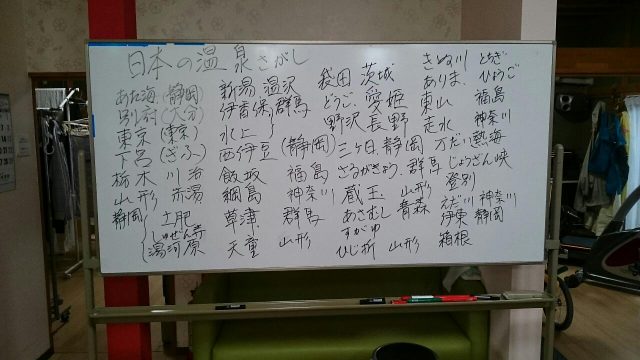 日本の温泉さがし
あた海 (静岡)
別府 (大分)
東京 (東京)
下呂 (ぎふ)
栃木 川治
山形 赤湯
静岡 土肥
しゅぜん寺
湯河原
新潟 湯沢
伊香保 群馬
水上 〃
西伊豆 (静岡)
飯坂 福島
綱島 神奈川
草津 群馬
天童 山形
袋田 茨城
どうご 愛姫
野沢 長野
三ヶ日 静岡
さるがきょう 群馬
蔵王 山形
あさむし 青森
すがゆ
ひじ折 山形
きぬ川 とちぎ
ありま ひょうご
東山 福島
走水 神奈川
熱海
じょうざん峡
登別
神奈川
伊東 静岡
箱根